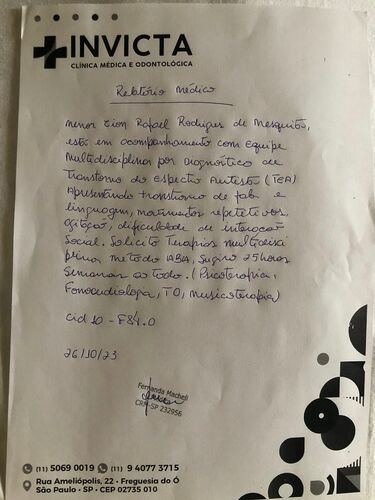 INVICTA
CLÍNICA MÉDICA E ODONTOLÓGICA
Relatório Médico
Menor Zion Rafael Rodrigues de Mesquita,
está em acompanhamento com equipe
multidisciplinar por diagnóstico de
Transtorno do Espectro Autista (TEA)
Apresentando transtorno de fala e
linguagem, movimentos repetitivos,
agitação, dificuldade de interação
Social. Solicito Terapias
método ABA, Sugiro 25 horas
Semanais ao todo. (Psicoterapia,
Fonoaudiologia, TO, musicoterapia)
Cid 10 - F84.0
26/10/23
Fernanda Machell
CRM-SP 232956
(11) 5069 0019 (11) 9 4077 3715
Rua Ameliópolis, 22 • Freguesia do Ó
São Paulo • SP • CEP 02735 010